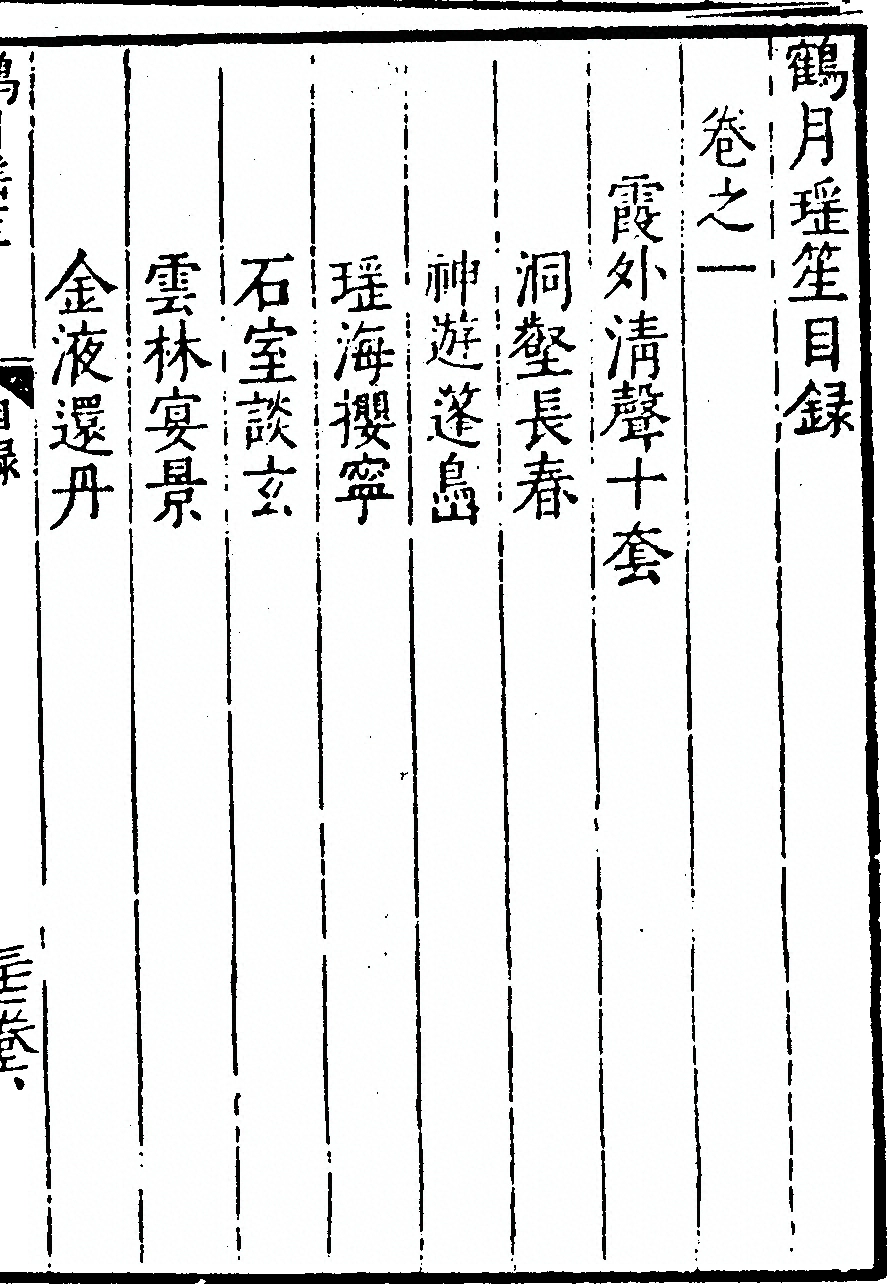 鶴月瑶笙目録
卷之一
霞外清聲十套
洞壑長春
神遊蓬島
瑶海攖寧
石室談玄
雲林宴景
金液還丹
目録